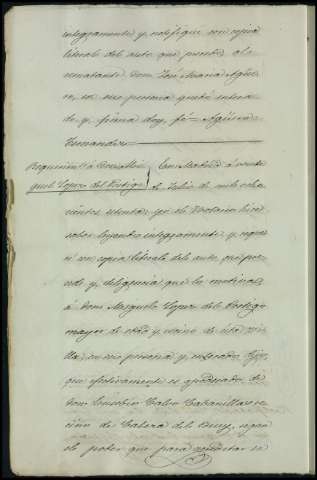 integramente y notifiqué con copia
literal del auto que precede al
rematante don José María Agüe
ra, en su persona quedó entera
do y firma doy fé = Agüera =
Fernandez
Requerimto. á Don Mi
guel Lopez del Postigo
En Martos á veinte
de Julio de mil ocho
cientos setenta: yo el Notario hice
saber leyendo integramente y reque
rí con copia literal del auto que prece
de y diligencia que lo motiva á
á don Miguel Lopez del Postigo
mayor de edad y vecino de esta vi
lla, en su persona y enterado dijo:
que efectivamente es apoderado de
don Calvo Cabanillas ve
cino de Cabeza del Buey, segun
el poder que para acreditar su